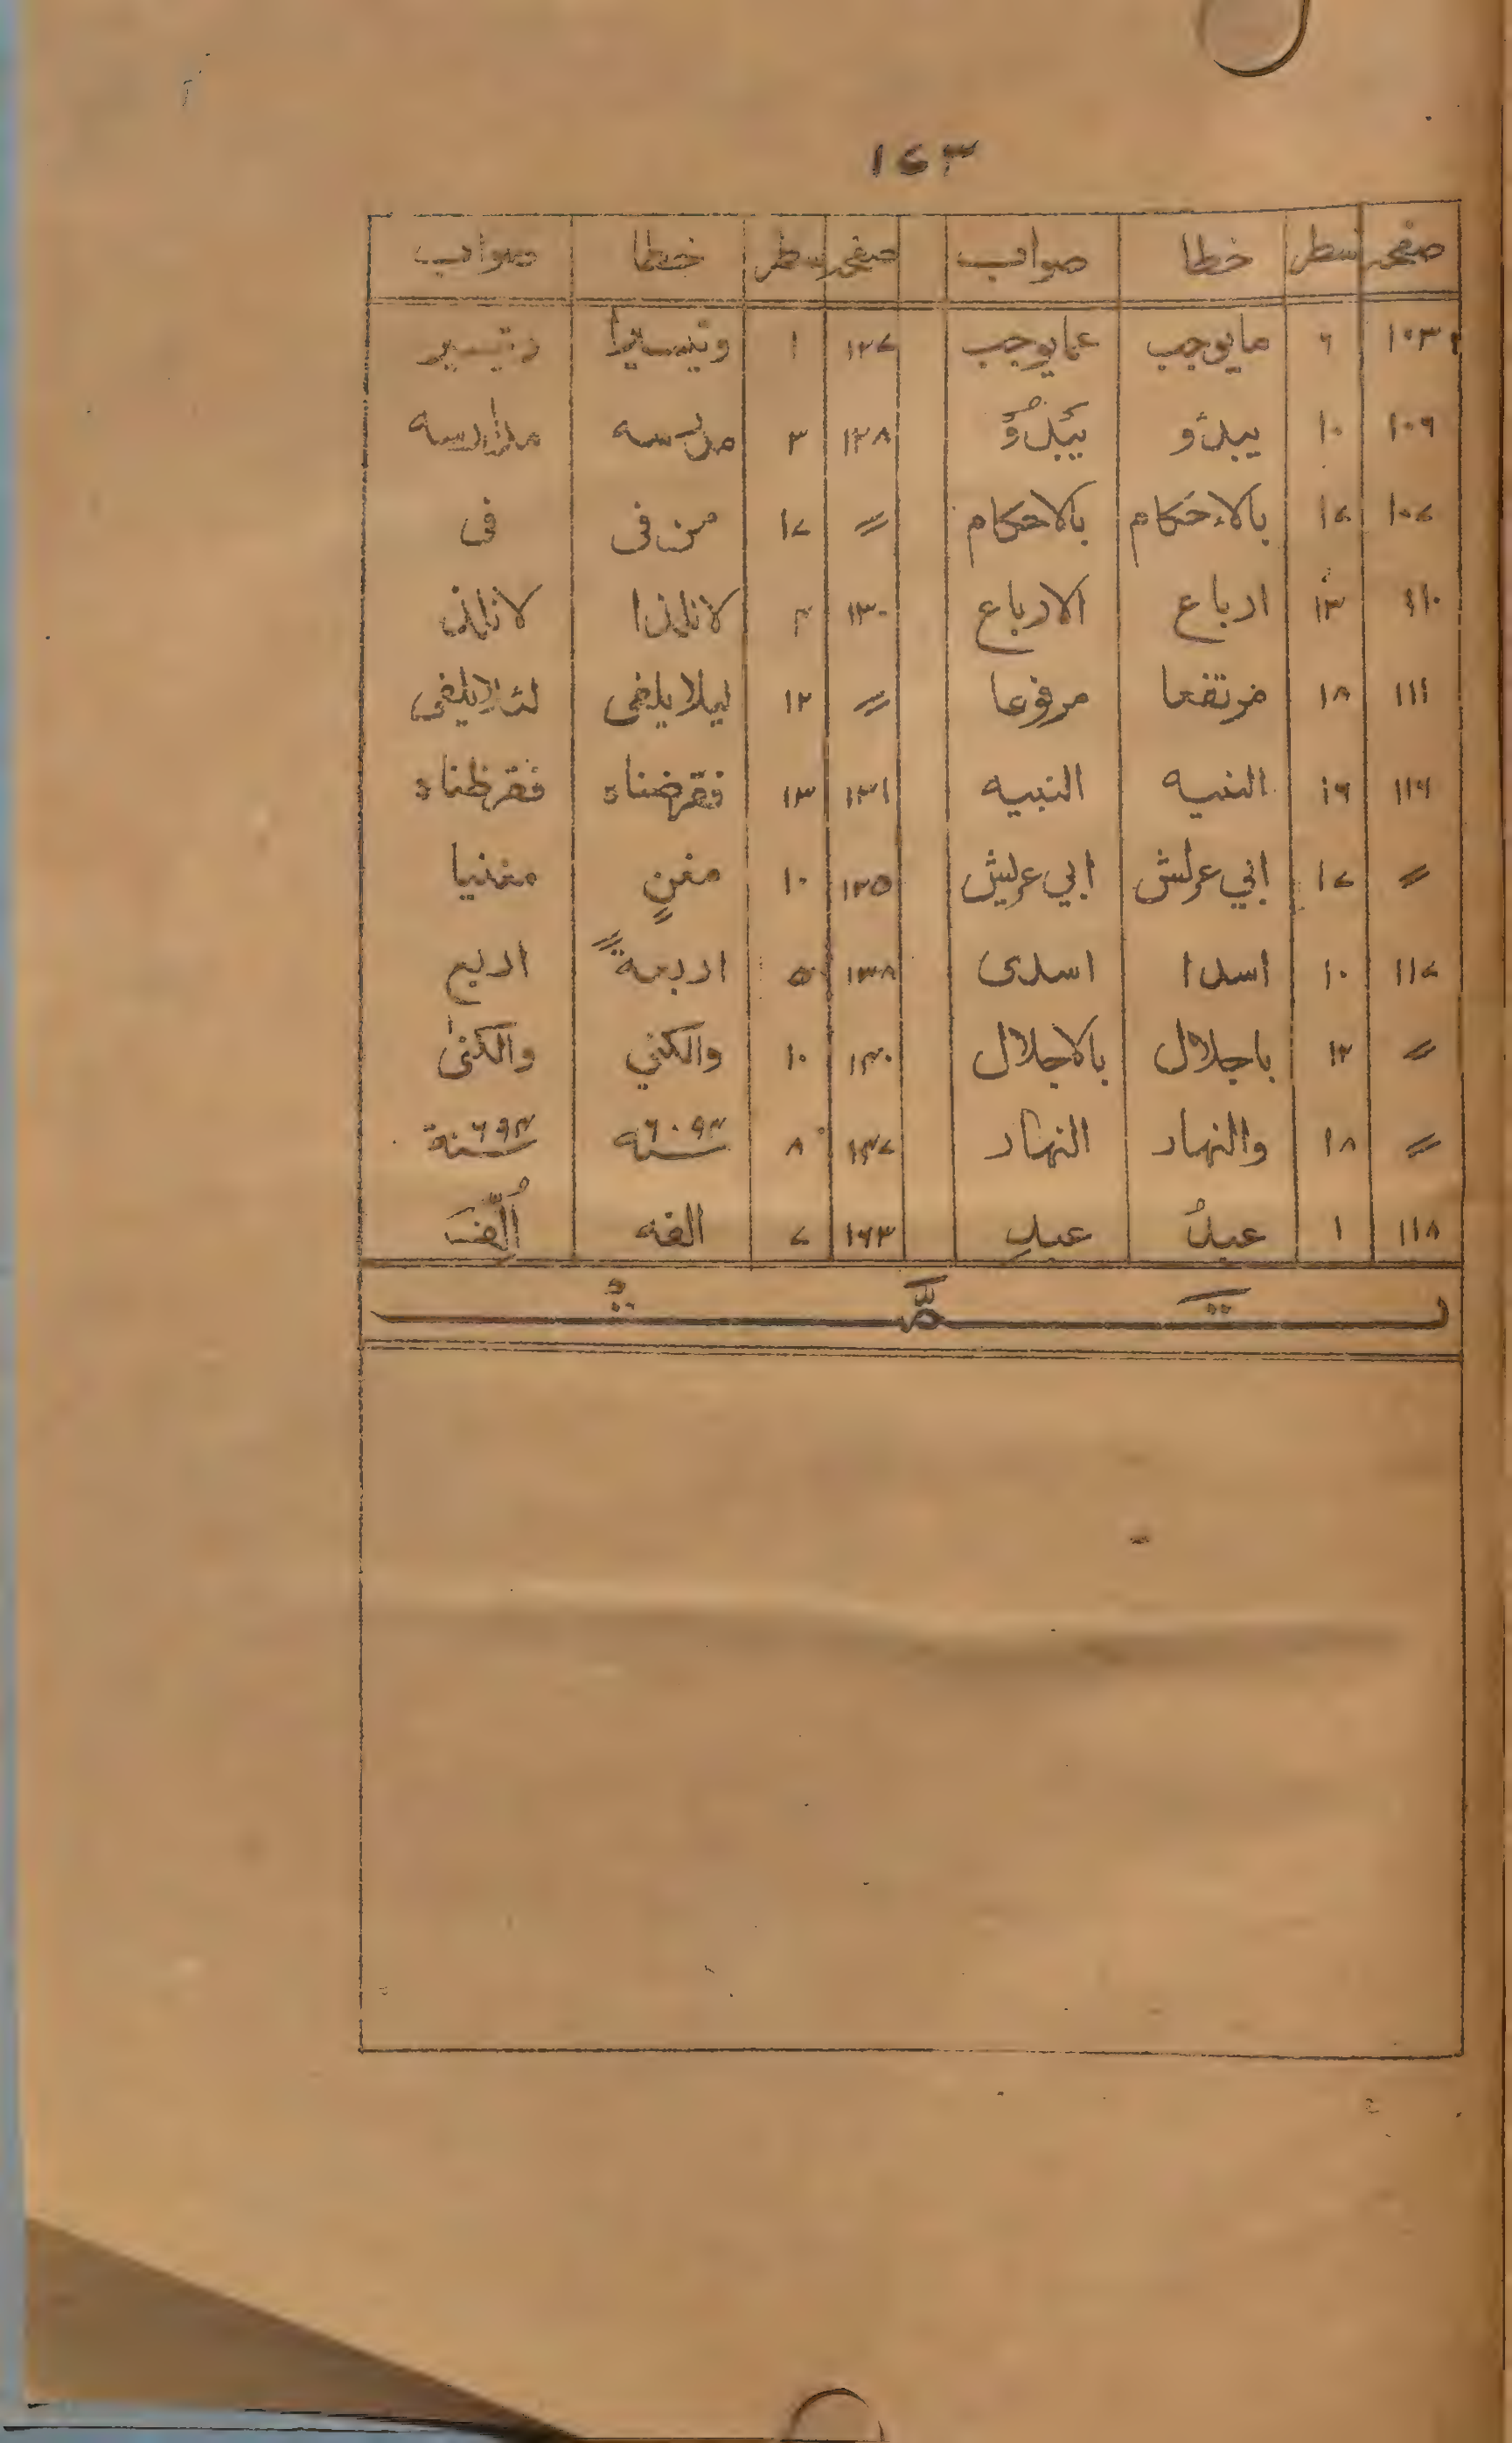 ١٤٣
صفحہ سطر خطا صواب صفحہ سطر خطا صواب
١٠٣ ٦ مايوجب عمايوجب ١٢٧ ١ وتيسيرا وتيسير
١٠٦ ١٠ يبدؤ يَبْدُؤُ ١٢٨ ٣ مدرسه مدارسه
١٠٧ ١٧ بالاءحكام بالاحكام〃 ١٧ من فى فى
١١٠ ١٣ ارباع الارباع ١٣٠ ٤ لاتلذا لاتلذ
١١١ ١٨ مرتفعا مرفوعا 〃 ١٢ ليلا يلغى لئلايلغى
١١٦ ١٦ النبيه ١٣١ ١٣ فقرضناه فقرظناه
〃 ١٧ ابي عريش ١٣٥ ١٠ مغنٍ مغنيا
١١٧ ١٠ اسدا اسدى ١٣٨ ٥ اربعة اربع
〃 ١٢ باجلال بالاجلال ١٤٠ ١٠ والكني والكنىٰ
〃 ١٨ والنهار النهار ١٤٧ ٨ سنه ٦٠٩٣ سنة ٦٩٣
١١٨ ١ عبدُ عبدِ ١٦٣ ٧ الفه أُلِّفَ
تَمَّتْ